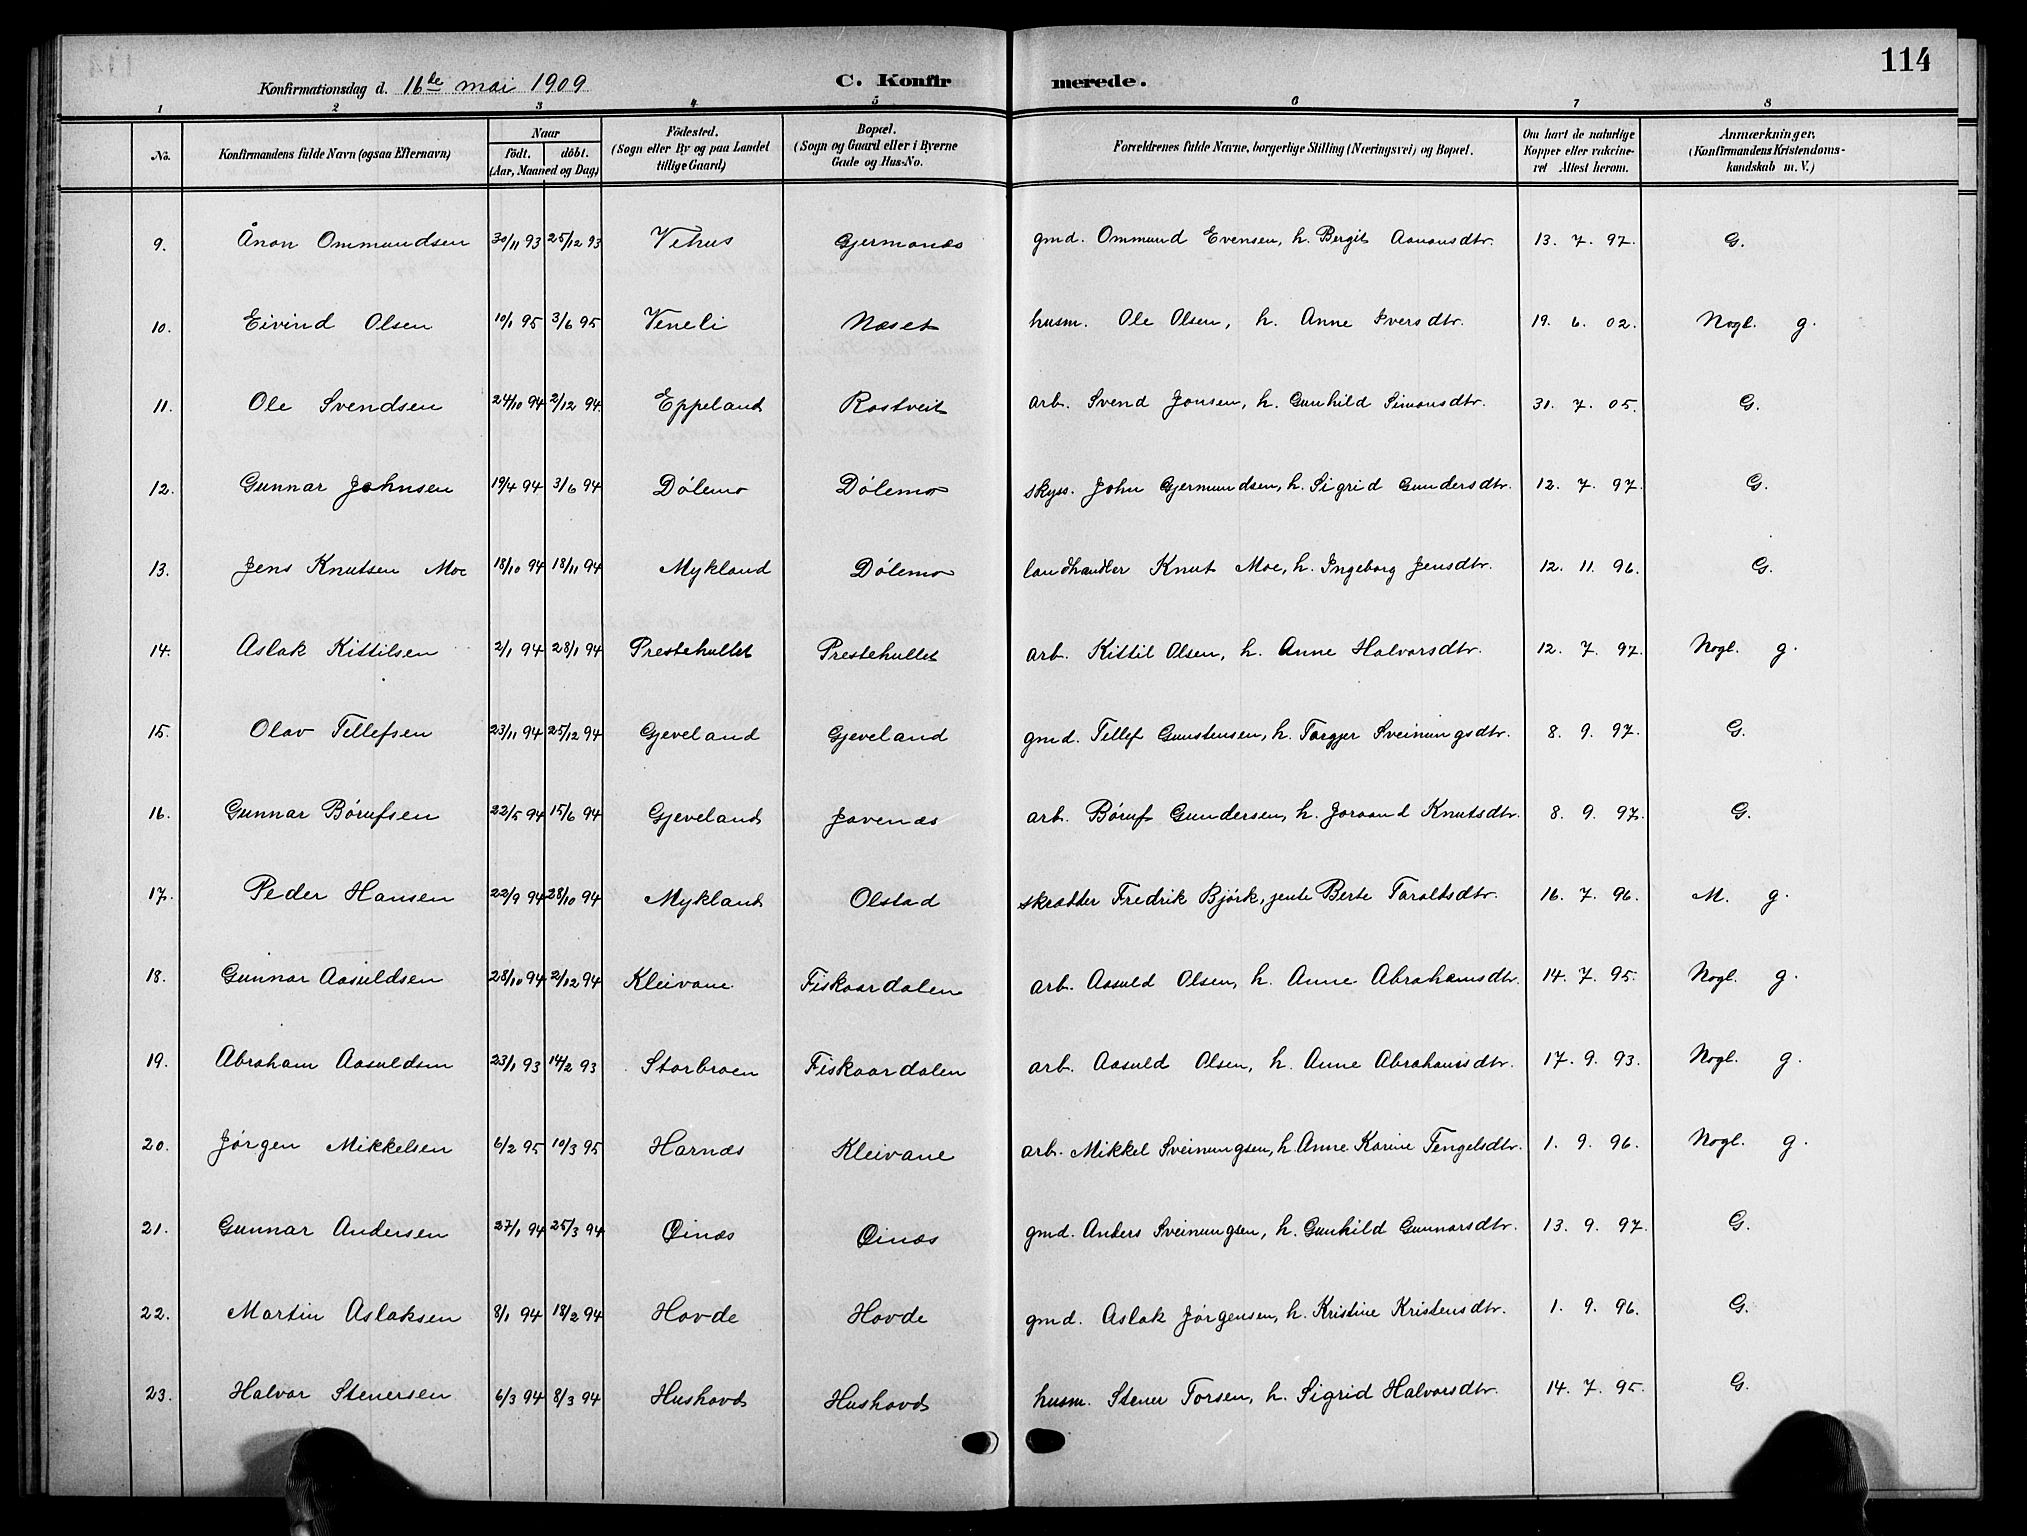 114
Konfirmationsdag d. 16de mai 1909 C. Konfirmerede.
1 2 3 4 5 6 7 8
No. Konfirmandens fulde Navn (ogsaa Efternavn) Naar født. døbt. (Aar, Maaned og Dag) Fødested. (Sogn eller By og paa Landet tillige Gaard) Bopæl. (Sogn og Gaard eller i Byerne Gade og Hus-No. Forældrenes fulde Navne, borgerlige Stilling (Næringsvei) og Bopæl. Om havt de naturlige Kopper eller vakcineret Attest herom. Anmærkninger. (Konfirmandens Kristendomskundskab m. V.)
9. Ånon Ommundsen 30/11 93 25/12 93 Vehus Gjermonæs gmd. Ommund Evensen, h. Bergit Aanonsdtr. 13. 7. 97. G.
10. Eivind Olsen 10/1 95 3/6 95 Veneli Næset husm. Ole Olsen, h. Anne Iversdtr. 19. 6. 02. Nogl. g.
11. Ole Svendsen 24/10 94 2/12 94 Eppeland Rostveit arb. Svend Jonsen, h. Gunhild Simonsdtr. 31. 7. 05. G.
12. Gunnar Johnsen 19/4 94 3/6 94 Dølemo Dølemo skyss. John Gjermundsen, h. Sigrid Gundersdtr. 12. 7. 97. G.
13. Jens Knutsen Moe 18/10 94 18/11 94 Mykland Dølemo landhandler Knut Moe, h. Ingeborg Jensdtr. 12. 11. 96. G.
14. Aslak Kittilsen 2/1 94 28/1 94 Prestehultet Prestehultet arb. Kittil Olsen, h. Anne Halvorsdtr. 12. 7. 97. Nogl. g.
15. Olav Tellefsen 23/11 94 25/12 94 Gjeveland Gjeveland gmd. Tellef Gunstensen, h. Torgjer Sveinungsdtr. 8. 9. 97. G.
16. Gunnar Børufsen 22/5 94 15/6 94 Gjeveland Jovenæs arb. Børuf Gundersen, h. Joraand Knutsdtr. 8. 9. 97. G.
17. Peder Hansen 22/9 94 28/10 94 Mykland Olstad skrædder Fredrik Bjørk, jente Berte Taraldsdtr. 16. 7. 96. M. g.
18. Gunnar Aasuldsen 28/10 94 2/12 94 Kleivane Fiskaardalen arb. Aasuld Olsen, h. Anne Abrahamsdtr. 14. 7. 95. Nogl. g.
19. Abraham Aasuldsen 23/1 93 14/2 93 Storbroen Fiskaardalen arb. Aasuld Olsen, h. Anne Abrahamsdtr. 17. 9. 93. Nogl. g.
20. Jørgen Mikkelsen 6/2 95 10/3 95 Harnæs Kleivane arb. Mikkel Sveinungsen, h. Anne Karine Tengelsdtr. 1. 9. 96. Nogl. g.
21. Gunnar Andersen 27/1 94 25/3 94 Øinæs Øinæs gmd. Anders Sveinungsen, h. Gunhild Gunnarsdtr. 13. 9. 97. G.
22. Martin Aslaksen 8/1 94 18/2 94 Hovde Hovde gmd. Aslak Jørgensen, h. Kristine Kristensdtr. 1. 9. 96. G.
23. Halvor Stenersen 6/3 94 8/3 94 Hushovd Hushovd husm. Stener Torsen, h. Sigrid Halvorsdtr. 14. 7. 95. G.